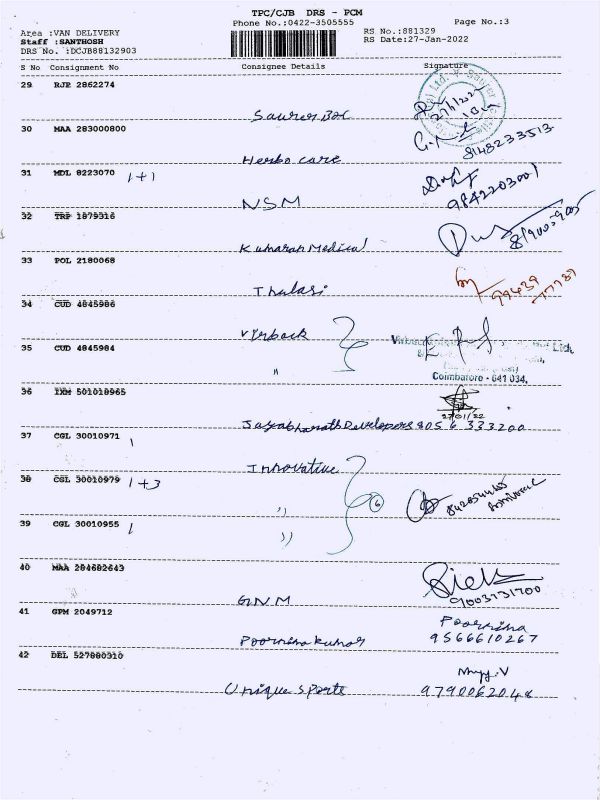 TPC/CJB DRS - PCM
Phone No.:0422-3505555
Page No.:3
Area :VAN DELIVERY
RS No.:881329
Staff :SANTHOSH
RS Date:27-Jan-2022
DRS No. :DCJB88132903
S No Consignment No Consignee Details Signature
29 RJP 2862274
27/1/22
30 MAA 283000800
8148233513
Herbo care
31 MDL 8223070 1+1
9842203001
NSM
32 TRP 1879316
Kumaran Medical
33 POL 2180068
Thulasi
99439
34 CUD 4845986
Virback
35 CUD 4845984
"
Coimbatore - 641 034.
36 IXM 501018965
27/01/22
Jayabharath Developers 8056 333200
37 CGL 30010971 1
Innovative
38 CGL 30010979 1+3
6
"
39 CGL 30010955 1
"
40 MAA 284682643
9003731700
GNM
41 GPM 2049712
Poornima
Poornima kumar 9566610267
42 DEL 527880310
Unique Sports 9790062048